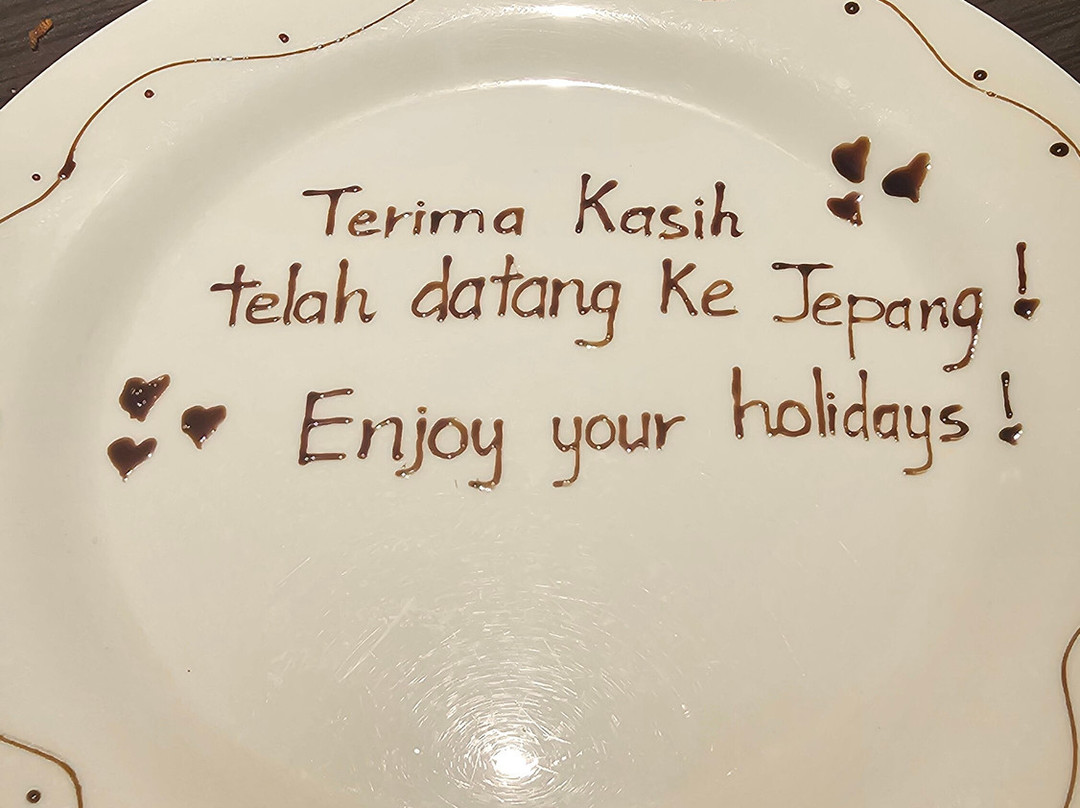 Terima Kasih
telah datang Ke Jepang!
Enjoy your holidays!